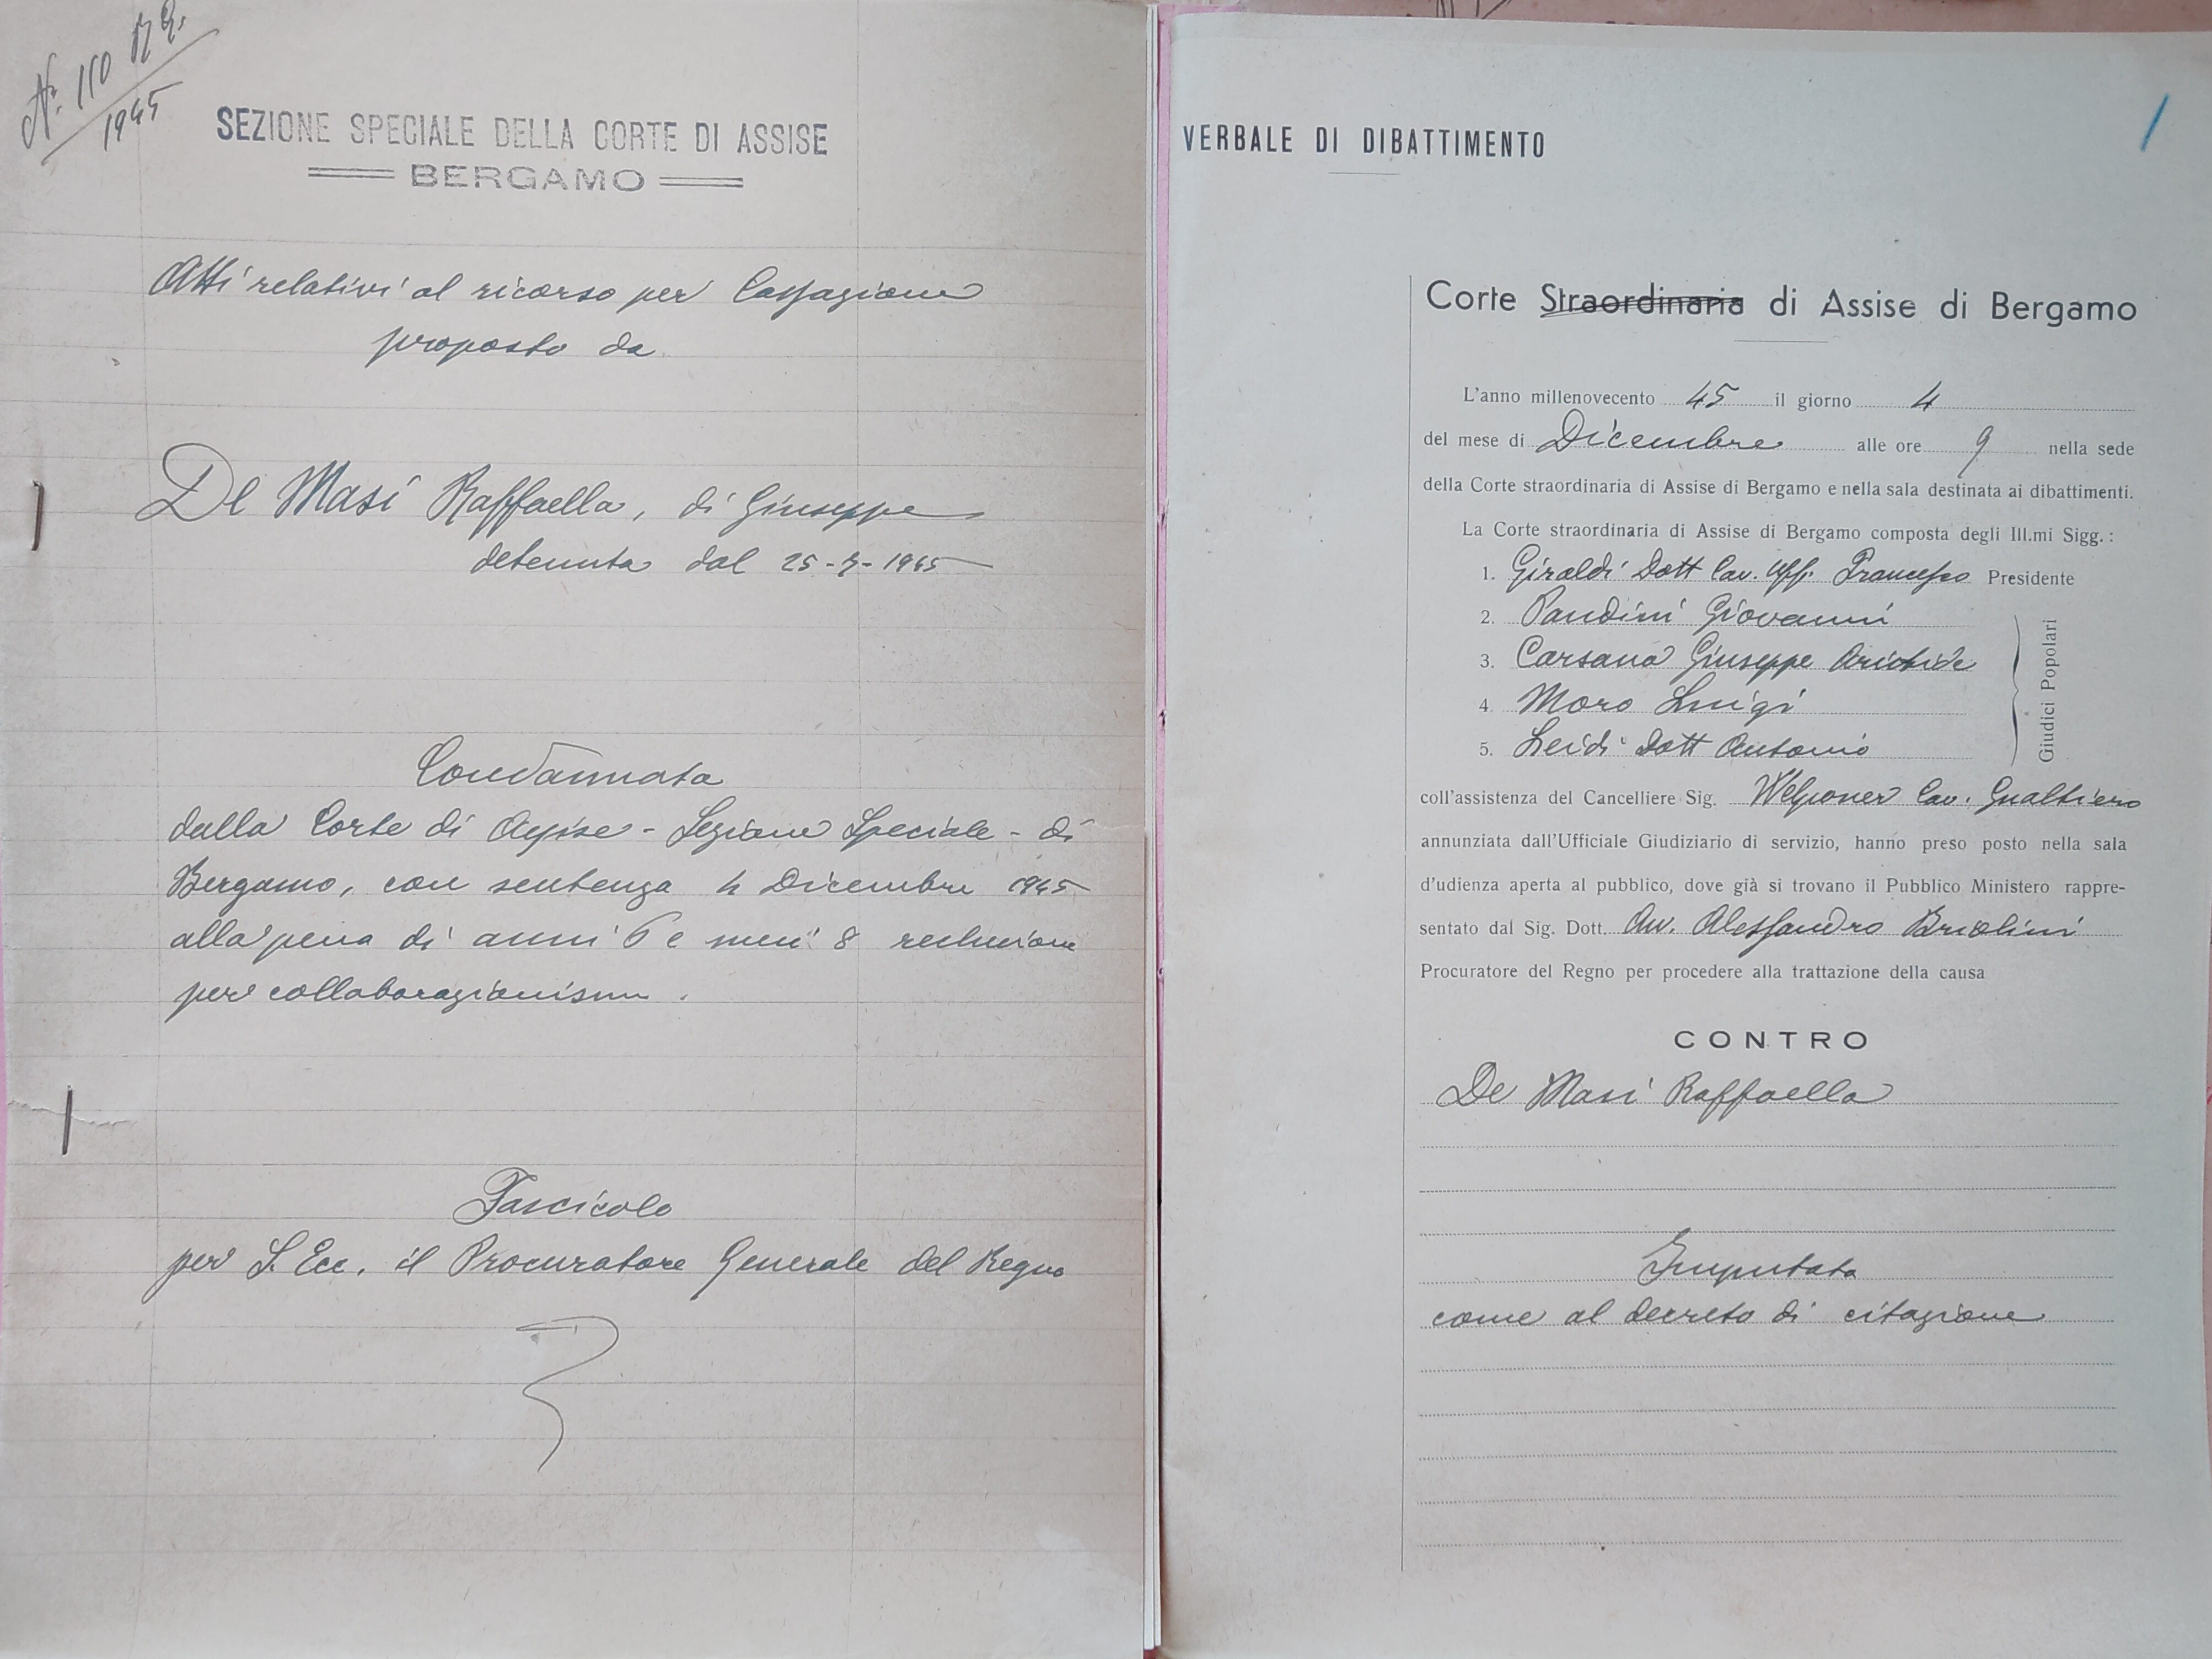 N. 110 R.G.
1945
SEZIONE SPECIALE DELLA CORTE DI ASSISE
BERGAMO
Atti relativi al ricorso per Cassazione
proposto da
De Masi Raffaella, di Giuseppe
detenuta dal 25-7-1945
Condannata
dalla Corte di Assise - Sezione Speciale - di
Bergamo, con sentenza 4 Dicembre 1945
alla pena di anni 6 e mesi 8 reclusione
per collaborazionismo.
Fascicolo
per S. Ecc. il Procuratore Generale del Regno
VERBALE DI DIBATTIMENTO
Corte Straordinaria di Assise di Bergamo
L'anno millenovecento 45 il giorno 4
del mese di Dicembre alle ore 9 nella sede
della Corte straordinaria di Assise di Bergamo e nella sala destinata ai dibattimenti.
La Corte straordinaria di Assise di Bergamo composta degli Ill.mi Sigg.:
1. Giraldi Dott Cav. Uff. Francesco Presidente
2. Pandini Giovanni
3. Carsana Giuseppe Aristide
4. Moro Luigi
5. Leidi Dott Antonio
Giudici Popolari
coll'assistenza del Cancelliere Sig. Welponer Cav. Gualtiero
annunziata dall'Ufficiale Giudiziario di servizio, hanno preso posto nella sala
d'udienza aperta al pubblico, dove già si trovano il Pubblico Ministero rappre-
sentato dal Sig. Dott. Avv. Alessandro Briolini
Procuratore del Regno per procedere alla trattazione della causa
CONTRO
De Masi Raffaella
Imputata
come al decreto di citazione